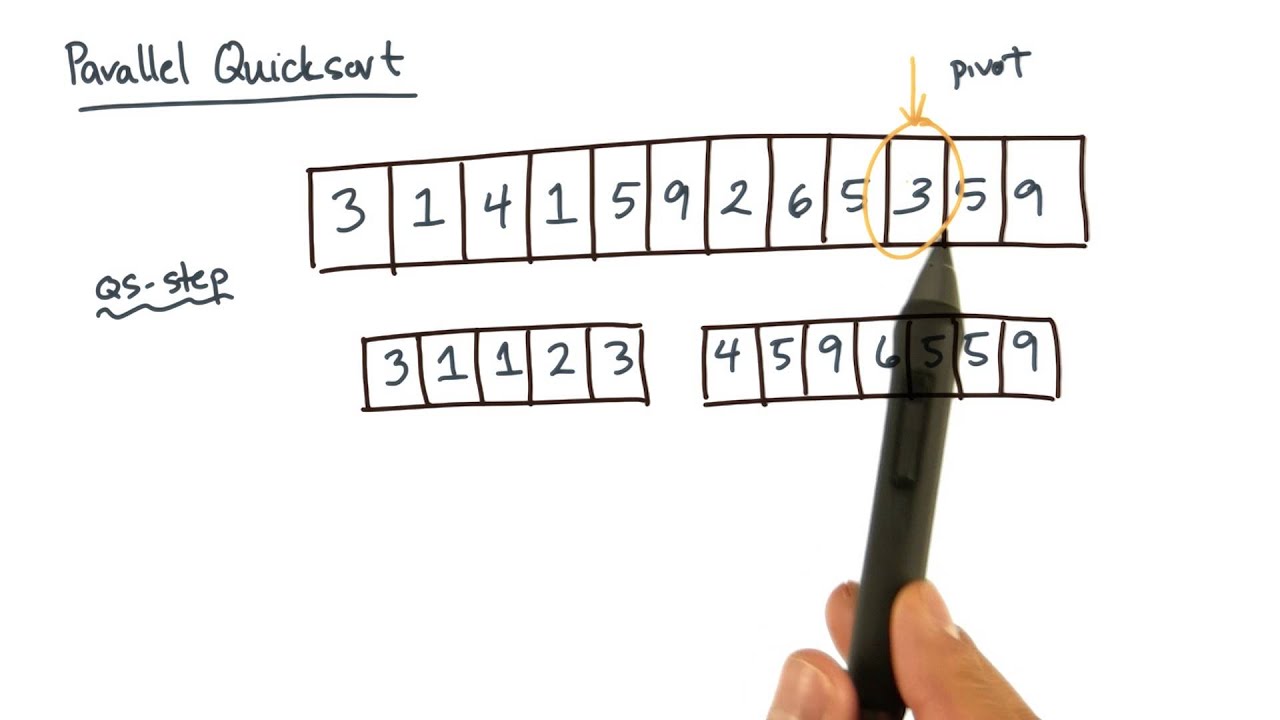 Parallel Quicksort
pivot
3 1 4 1 5 9 2 6 5 3 5 9
QS-step
3 1 1 2 3 4 5 9 6 5 5 9